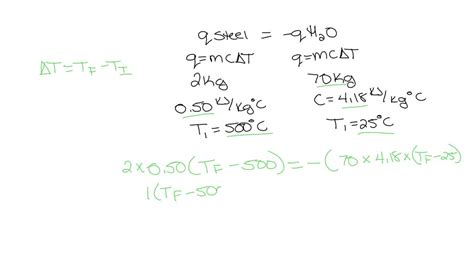 q steel = -q H₂O
ΔT = T_F - T_I
q=mCΔT q=mCΔT
2kg 70kg
0.50 kJ/kg°C C=4.18 kJ/kg°C
T₁=500°C T₁=25°C
2 × 0.50(T_F - 500) = -(70 × 4.18 × (T_F - 25)
1(T_F - 50